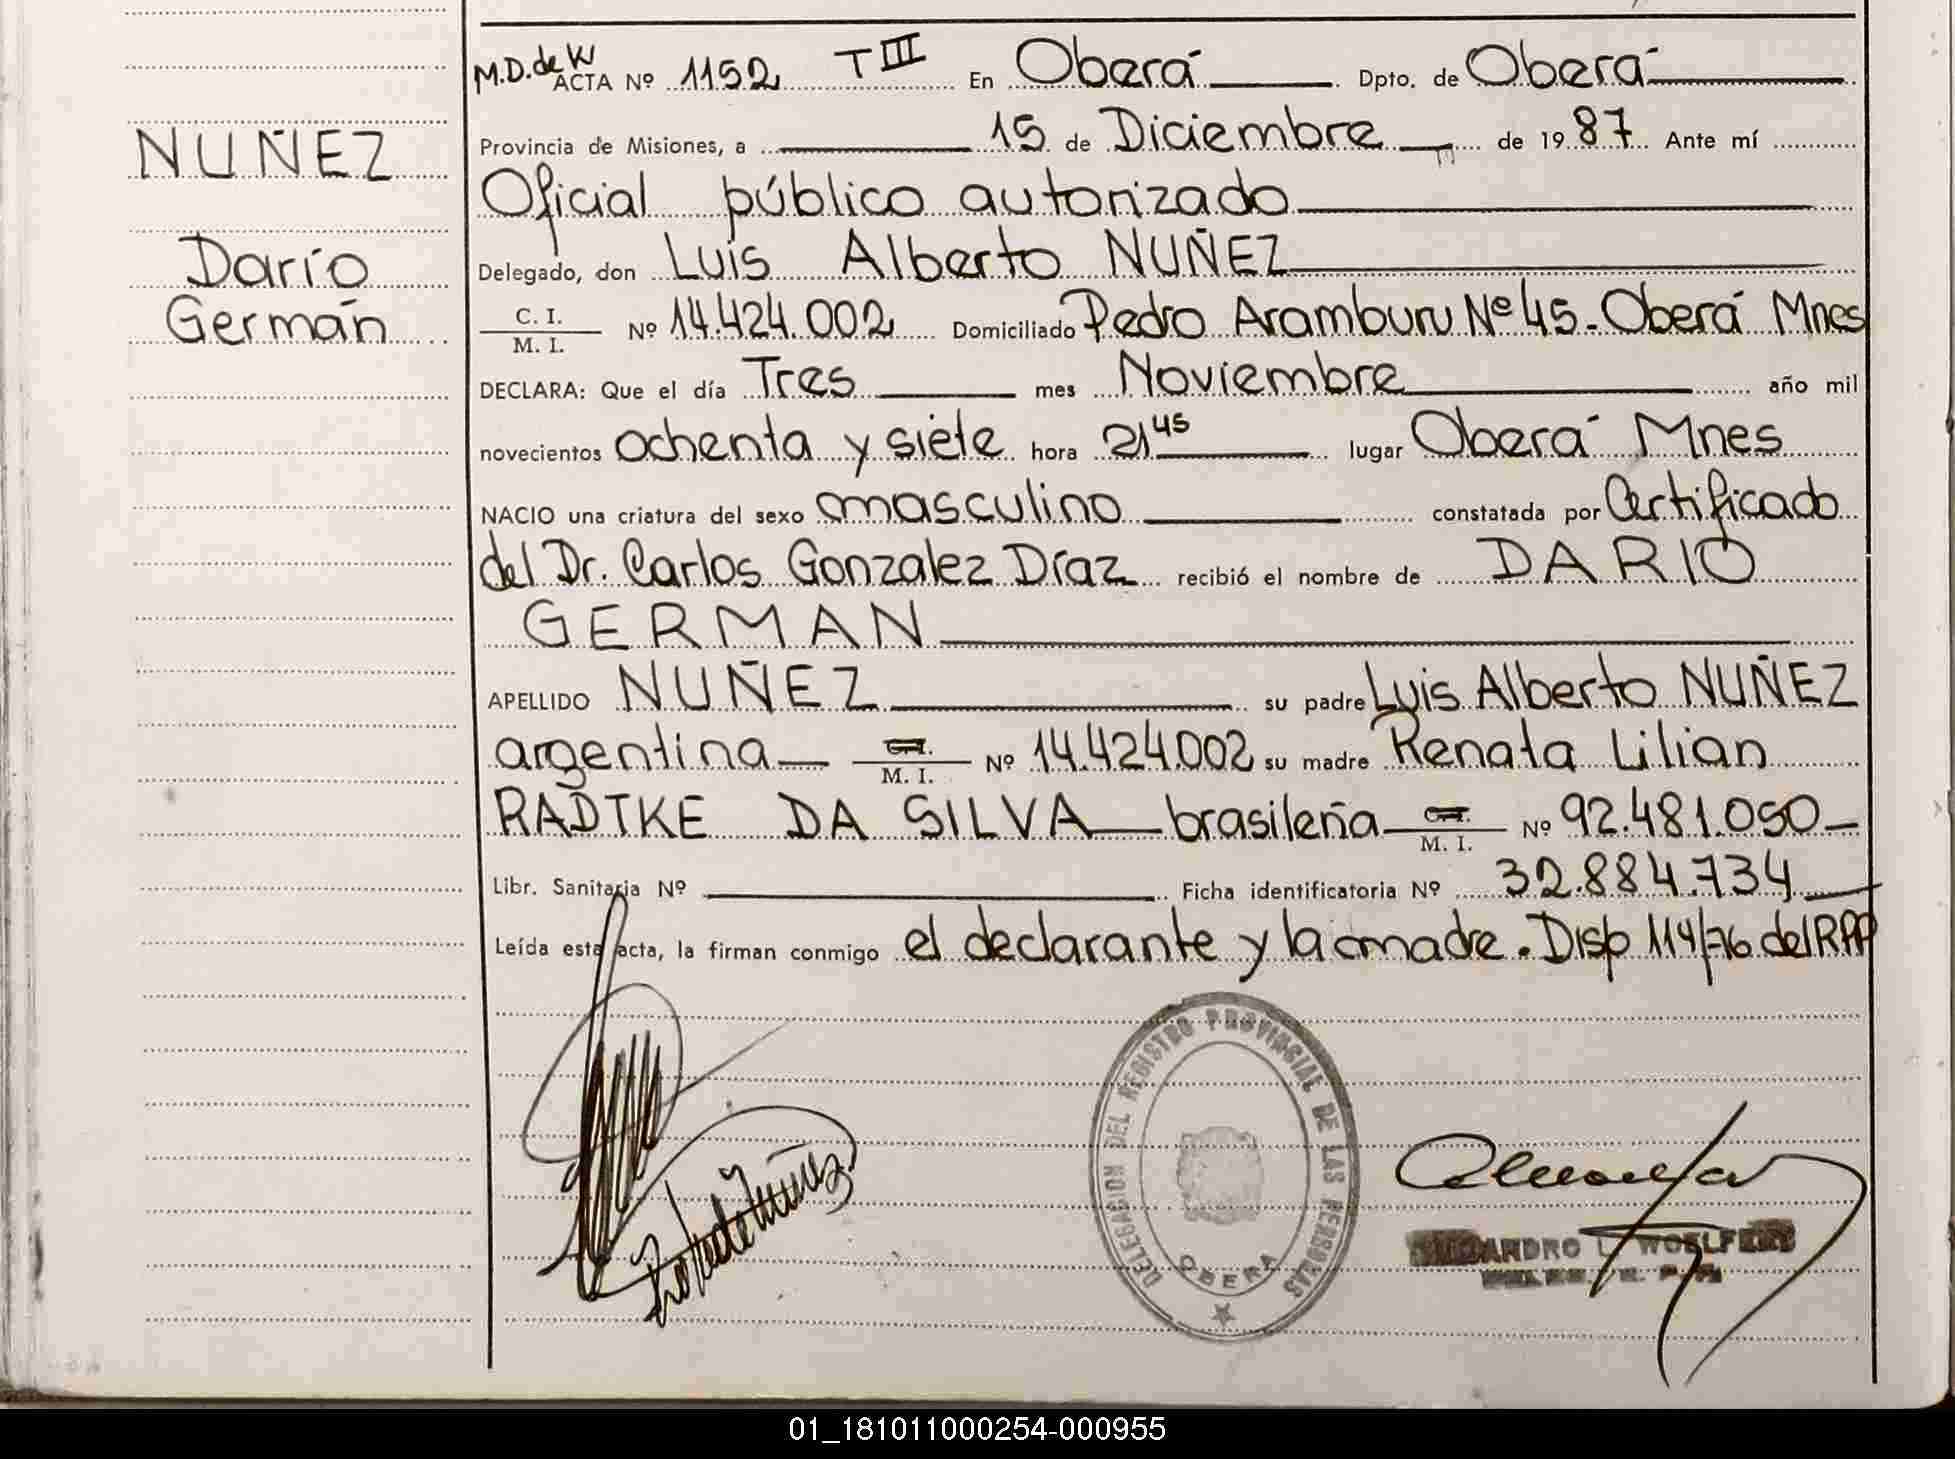 M.D.de W
ACTA Nº 1152 T III En Oberá Dpto. de Oberá
Provincia de Misiones, a 15 de Diciembre de 1987 Ante mí
NUÑEZ
Oficial público autorizado
Darío
Delegado, don Luis Alberto NUÑEZ
Germán
C. I.
M. I. Nº 14.424.002 Domiciliado Pedro Aramburu Nº 45-Oberá Mnes
DECLARA: Que el día Tres mes Noviembre año mil
novecientos ochenta y siete hora 21 45 lugar Oberá Mnes
NACIO una criatura del sexo masculino constatada por Certificado
del Dr. Carlos Gonzalez Díaz recibió el nombre de DARIO
GERMAN
APELLIDO NUÑEZ su padre Luis Alberto NUÑEZ
argentina C.I. M. I. Nº 14.424.002 su madre Renata Lilian
RADTKE DA SILVA brasileña C.I. M. I. Nº 92.481.050
Libr. Sanitaria Nº Ficha identificatoria Nº 32.884.734
Leída esta acta, la firman conmigo el declarante y la madre. Disp 114/76 del RPP
DELEGACION DEL REGISTRO PROVINCIAL DE LAS PERSONAS
OBERA
WOELFERT
01_181011000254-000955